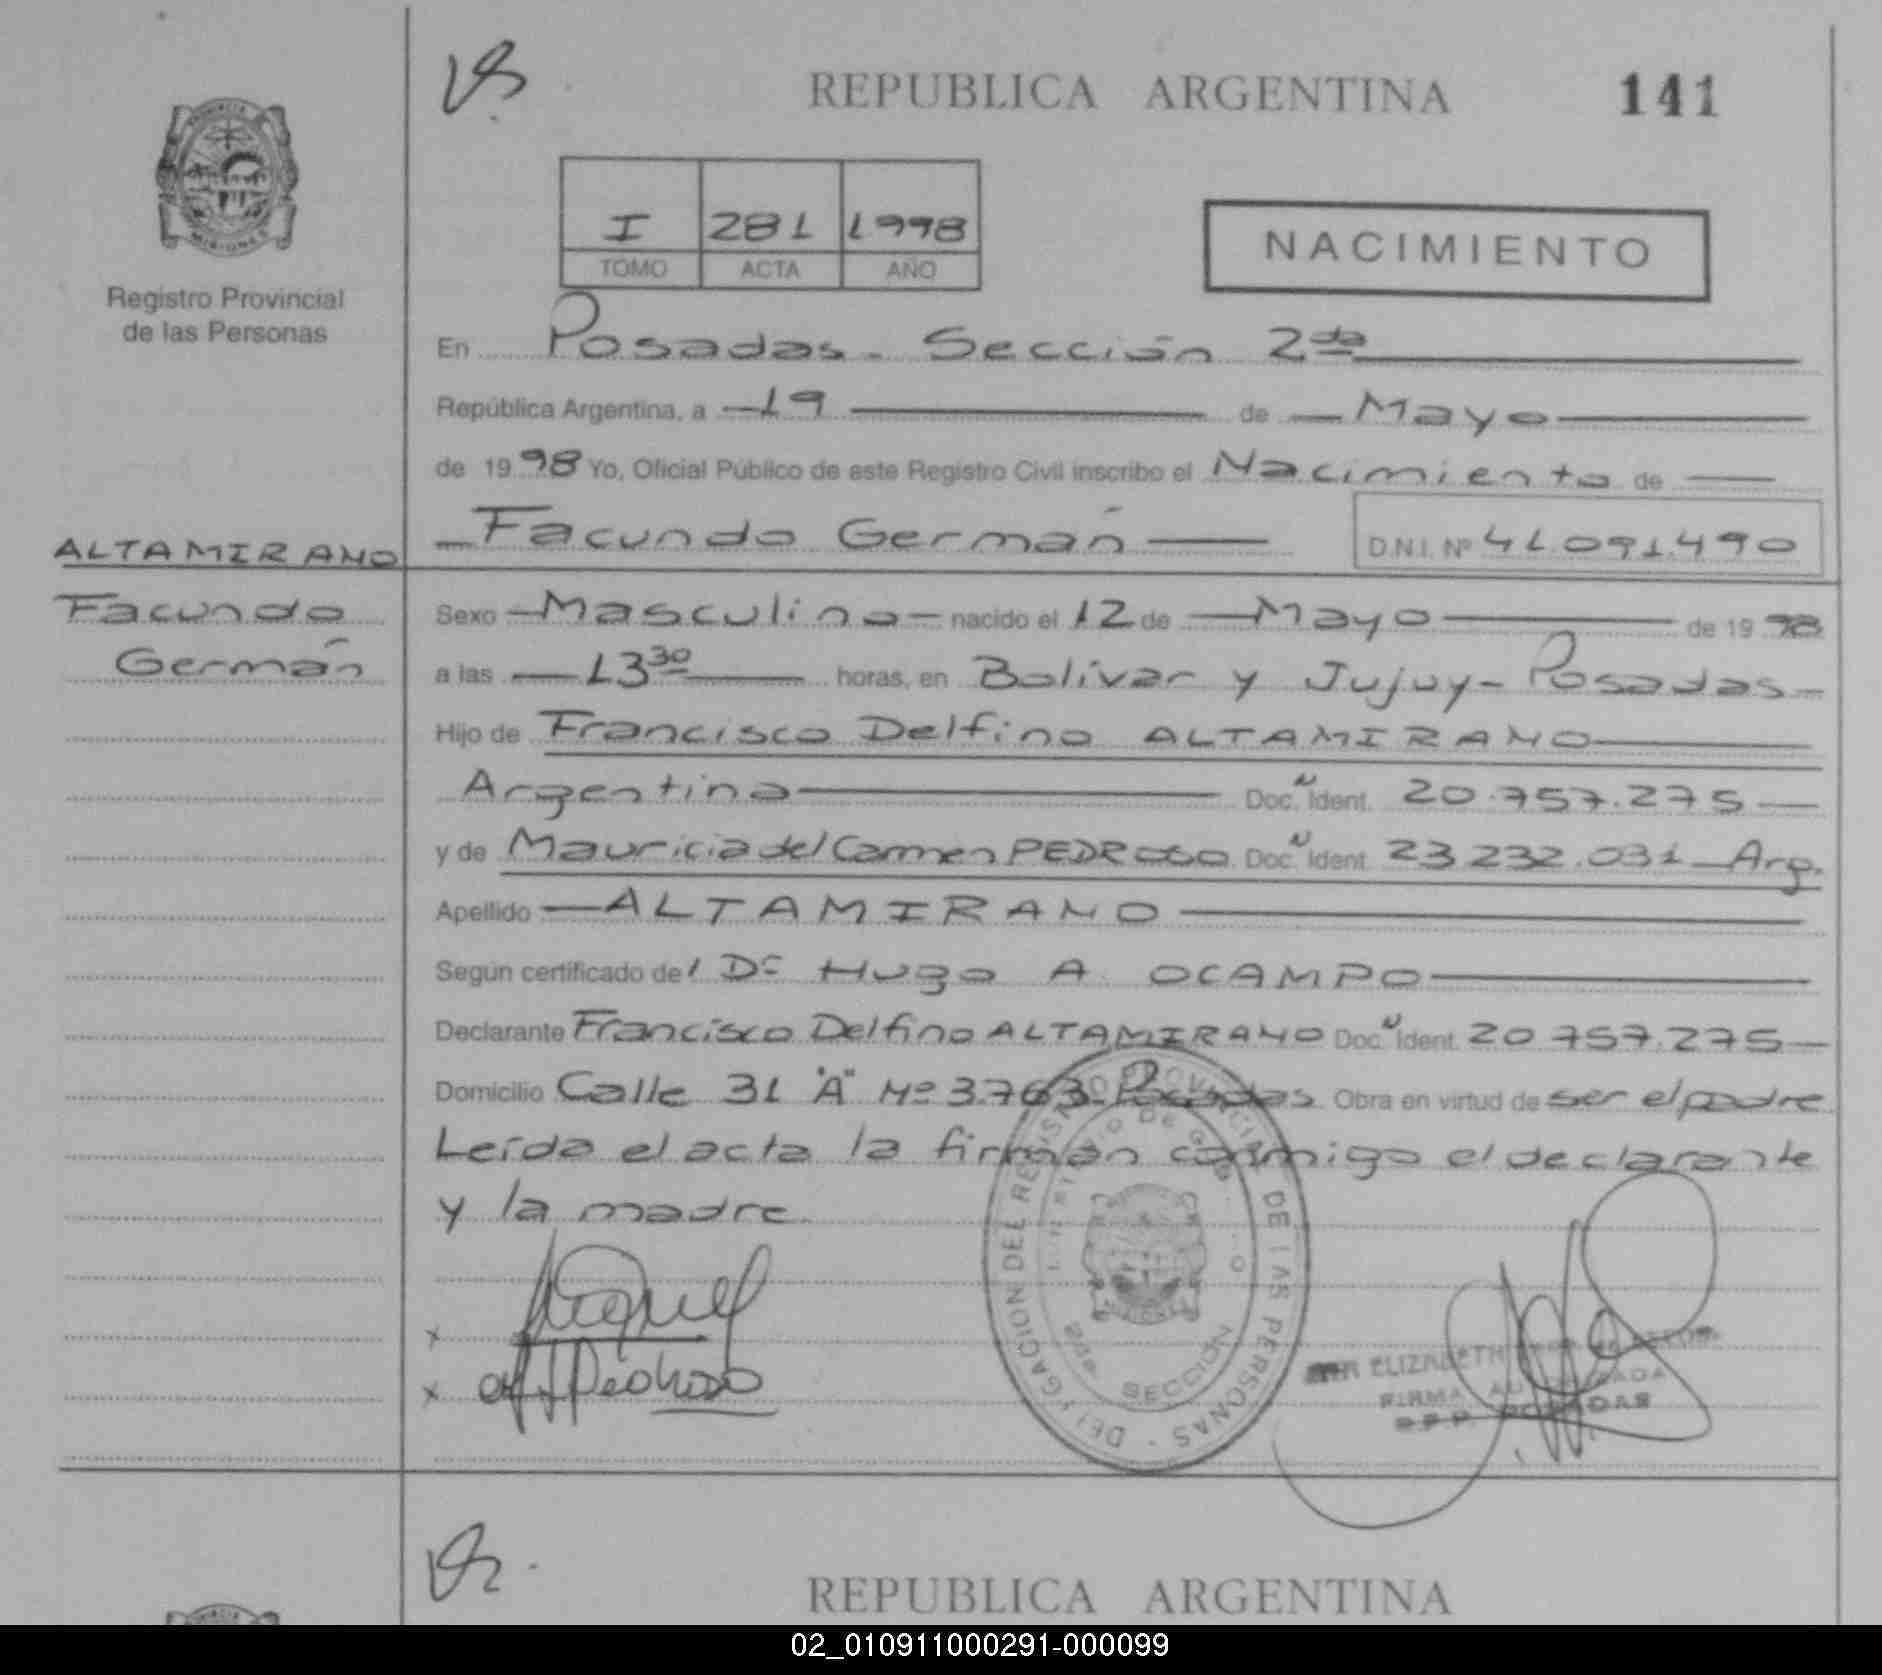 REPUBLICA ARGENTINA 141
I 281 1998
TOMO ACTA AÑO
NACIMIENTO
PROVINCIA
MISIONES
Registro Provincial
de las Personas
En Posadas - Sección 2da
República Argentina, a 19 de Mayo
de 1998 Yo, Oficial Público de este Registro Civil inscribo el Nacimiento de
Facundo Germán D.N.I. Nº 41.091.490
ALTAMIRANO
Facundo
Germán
Sexo Masculino nacido el 12 de Mayo de 1998
a las 13 30 horas, en Bolívar y Jujuy - Posadas -
Hijo de Francisco Delfino ALTAMIRANO
Argentina Doc. Ident. 20.757.275
y de Mauricia del Carmen PEDROSO Doc. Ident. 23.232.031 Arg.
Apellido ALTAMIRANO
Según certificado del Dr Hugo A. OCAMPO
Declarante Francisco Delfino ALTAMIRANO Doc. Ident. 20.757.275
Domicilio Calle 31 "A" Nº 3.763 - Posadas Obra en virtud de ser el padre
Leída el acta la firman conmigo el declarante
y la madre.
x
x Pedroso
DELEGACION DEL REGISTRO PROVINCIAL DE LAS PERSONAS
2da SECCIÓN
ELIZABETH
FIRMA AUTORIZADA
POSADAS
REPUBLICA ARGENTINA
02_010911000291-000099